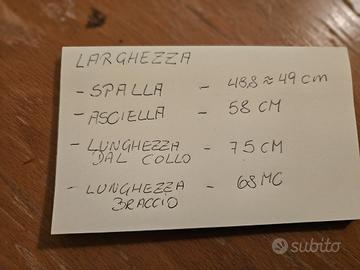 LARGHEZZA
- SPALLA - 48,8 ≈ 49 cm
- ASCIELLA - 58 CM
- LUNGHEZZA DAL COLLO - 75 CM
- LUNGHEZZA BRACCIO - 68 MC
subito